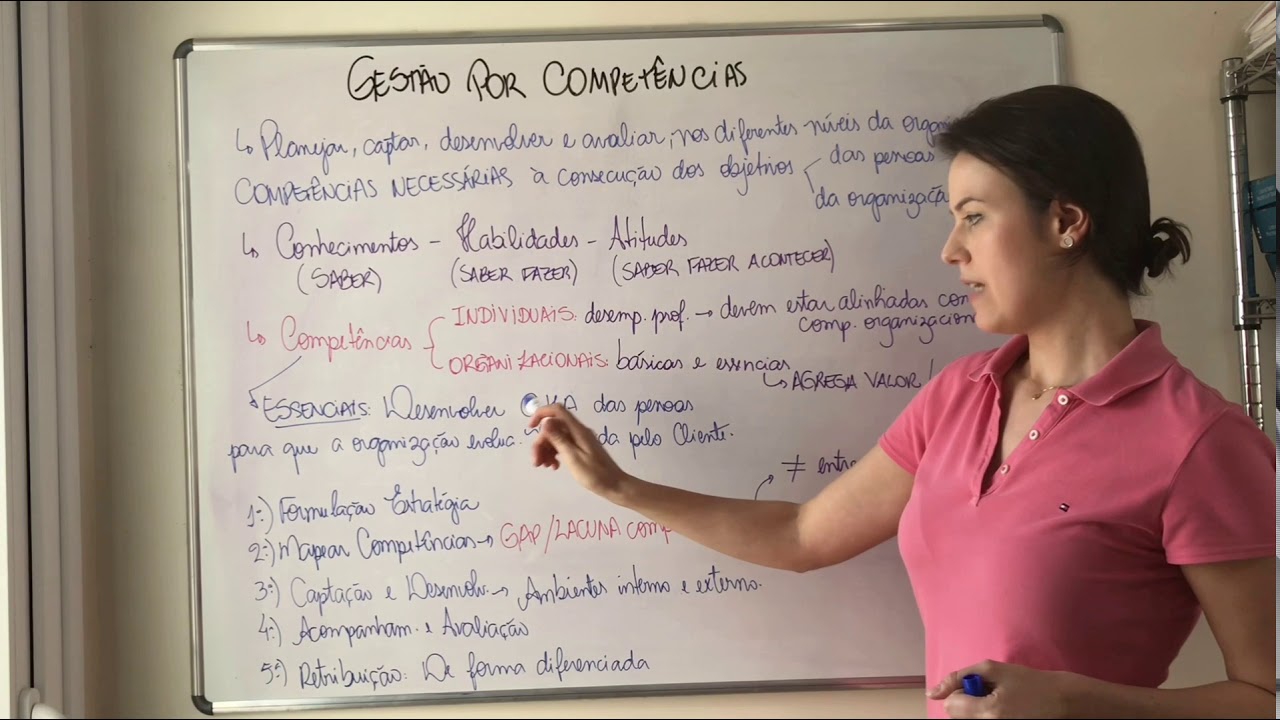 GESTÃO POR COMPETÊNCIAS
↳ Planejar, captar, desenvolver e avaliar, nos diferentes níveis da
COMPETÊNCIAS NECESSÁRIAS à consecução dos objetivos
das pessoas
da organização
↳ Conhecimentos - Habilidades - Atitudes
(SABER) (SABER FAZER) (SABER FAZER ACONTECER)
↳ Competências
INDIVIDUAIS: desemp. prof. → devem estar alinhadas com
comp. organizacion
ORGANIZACIONAIS: básicas e essencias
↳ AGREGA VALOR
ESSENCIAIS: Desenvolver das pessoas
para que a organização evolua. pelo Cliente.
≠ entre
1º) Formulação Estratégia
2º) Mapear Competências → GAP/LACUNA comp
3º) Captação e Desenvolv. → Ambientes interno e externo.
4º) Acompanham. e Avaliação
5º) Retribuição: De forma diferenciada